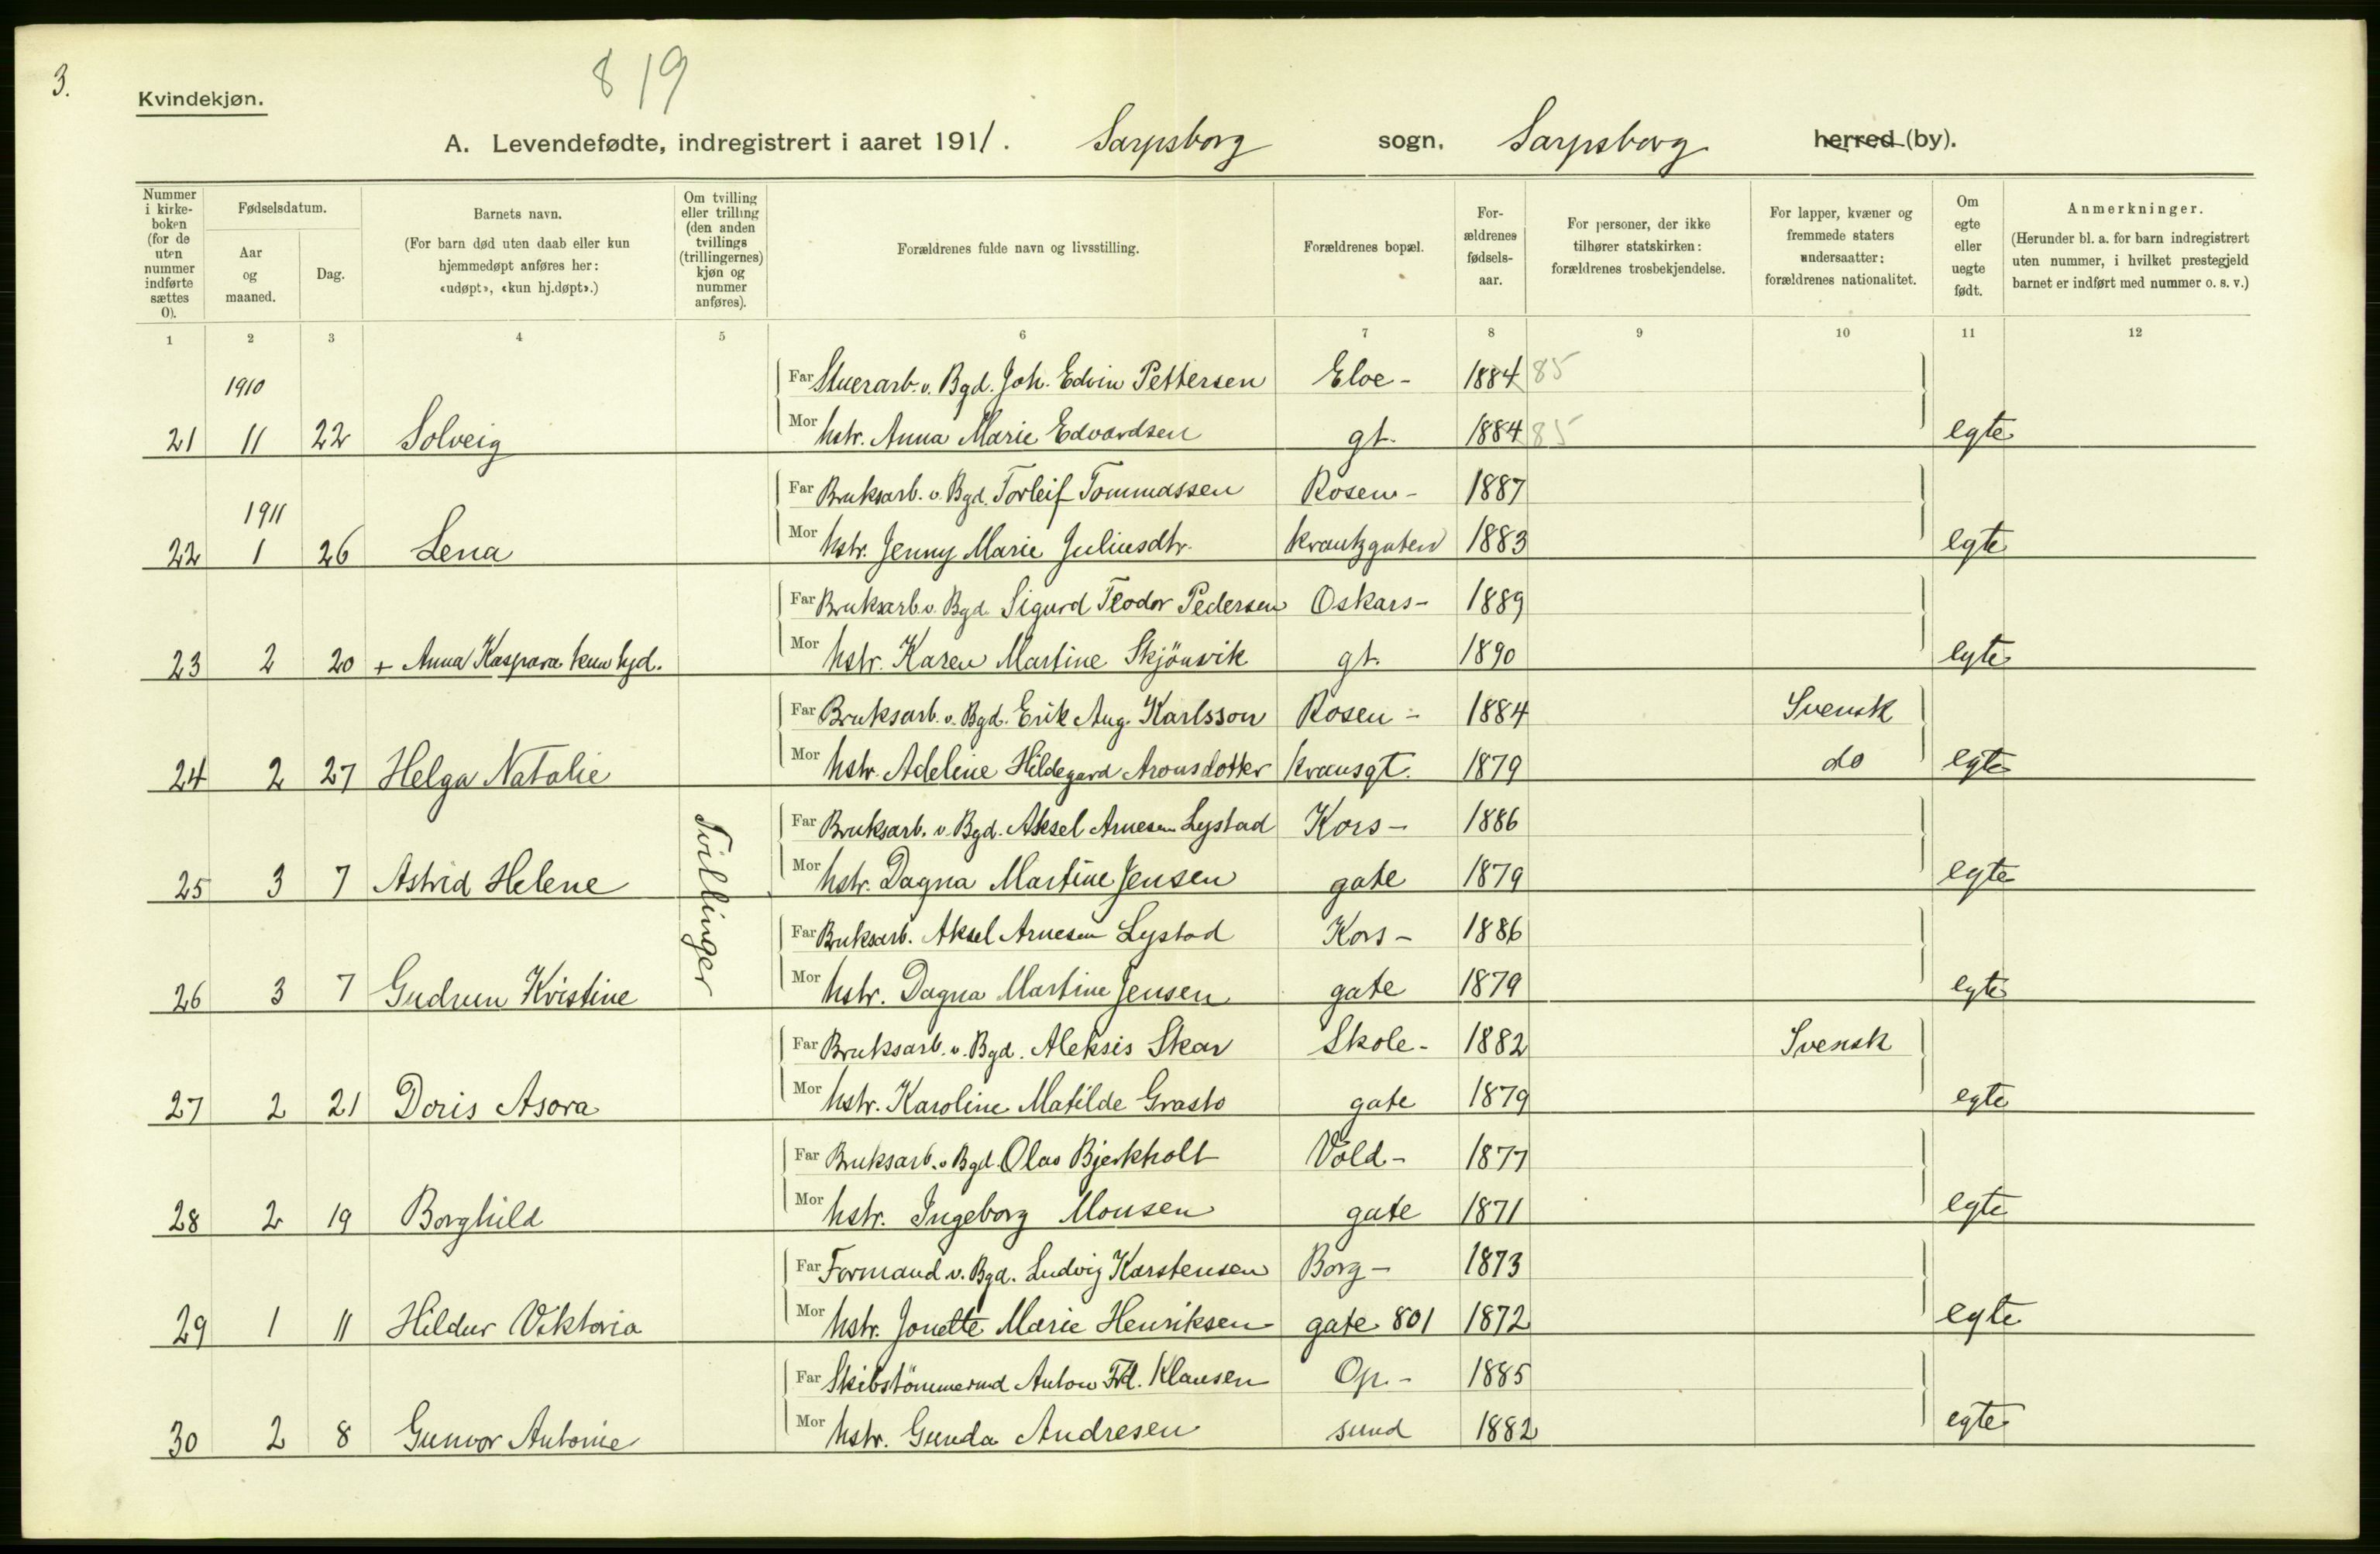 3.
819
Kvindekjøn.
A. Levendefødte, indregistrert i aaret 1911. Sarpsborg sogn. Sarpsborg herred (by).
Nummer i kirke-boken (for de uten nummer indførte sættes 0).
Fødselsdatum.
Aar og maaned.
Dag.
Barnets navn.
(For barn død uten daab eller kun hjemmedøpt anføres her: «udøpt», «kun hj.døpt».)
Om tvilling eller trilling (den anden tvillings (trillingernes) kjøn og nummer anføres).
Forældrenes fulde navn og livsstilling.
Forældrenes bopæl.
For-ældrenes fødsels-aar.
For personer, der ikke tilhører statskirken: forældrenes trosbekjendelse.
For lapper, kvæner og fremmede staters undersaatter: forældrenes nationalitet.
Om egte eller uegte født.
Anmerkninger.
(Herunder bl. a. for barn indregistrert uten nummer, i hvilket prestegjeld barnet er indført med nummer o. s. v.)
1 2 3 4 5 6 7 8 9 10 11 12
1910 Far Stuerarb. v. Bgd. Joh. Edvin Pettersen Eloe- 1884 85
21 11 22 Solveig Mor hstr. Anna Marie Edvardsen gt. 1884 85 egte
1911 Far Bruksarb. v. Bgd. Torleif Tommassen Rosen- 1887
22 1 26 Lena Mor hstr. Jenny Marie Juliusdtr. krantzgaten 1883 egte
Far Bruksarb. v. Bgd. Sigurd Teodor Pedersen Oskars- 1889
23 2 20 + Anna Kaspara kun hjd. Mor hstr. Karen Martine Skjönvik gt. 1890 egte
Far Bruksarb. v. Bgd. Erik Aug. Karlsson Rosen- 1884 Svensk
24 2 27 Helga Natalie Mor hstr. Adeline Hildegard Aronsdotter kransgt. 1879 do egte
Far Bruksarb. v. Bgd. Aksel Arnesen Lystad Kors- 1886
25 3 7 Astrid Helene Tvillinger Mor hstr. Dagna Martine Jensen gate 1879 egte
Far Bruksarb. Aksel Arnesen Lystad Kors- 1886
26 3 7 Gudrun Kristine Mor hstr. Dagna Martine Jensen gate 1879 egte
Far Bruksarb. v. Bgd. Aleksis Skar Skole- 1882 Svensk
27 2 21 Doris Asora Mor hstr. Karoline Matilde Grasto gate 1879 egte
Far Bruksarb. v. Bgd. Olav Bjerkholt Vold- 1877
28 2 19 Borghild Mor hstr. Ingeborg Monsen gate 1871 egte
Far Formand v. Bgd. Ludvig Karstensen Borg- 1873
29 1 11 Hildur Viktoria Mor hstr. Jonette Marie Henriksen gate 801 1872 egte
Far Skibstömmermd Anton Frd. Klausen Op- 1885
30 2 8 Gunvor Antonie Mor hstr. Gunda Andresen sund 1882 egte